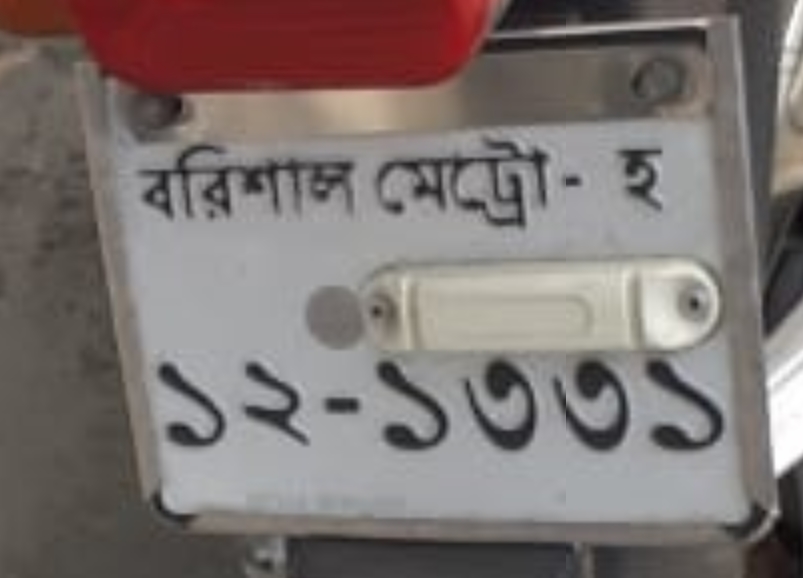 বরিশাল মেট্রো- হ
১২-১৩৩১